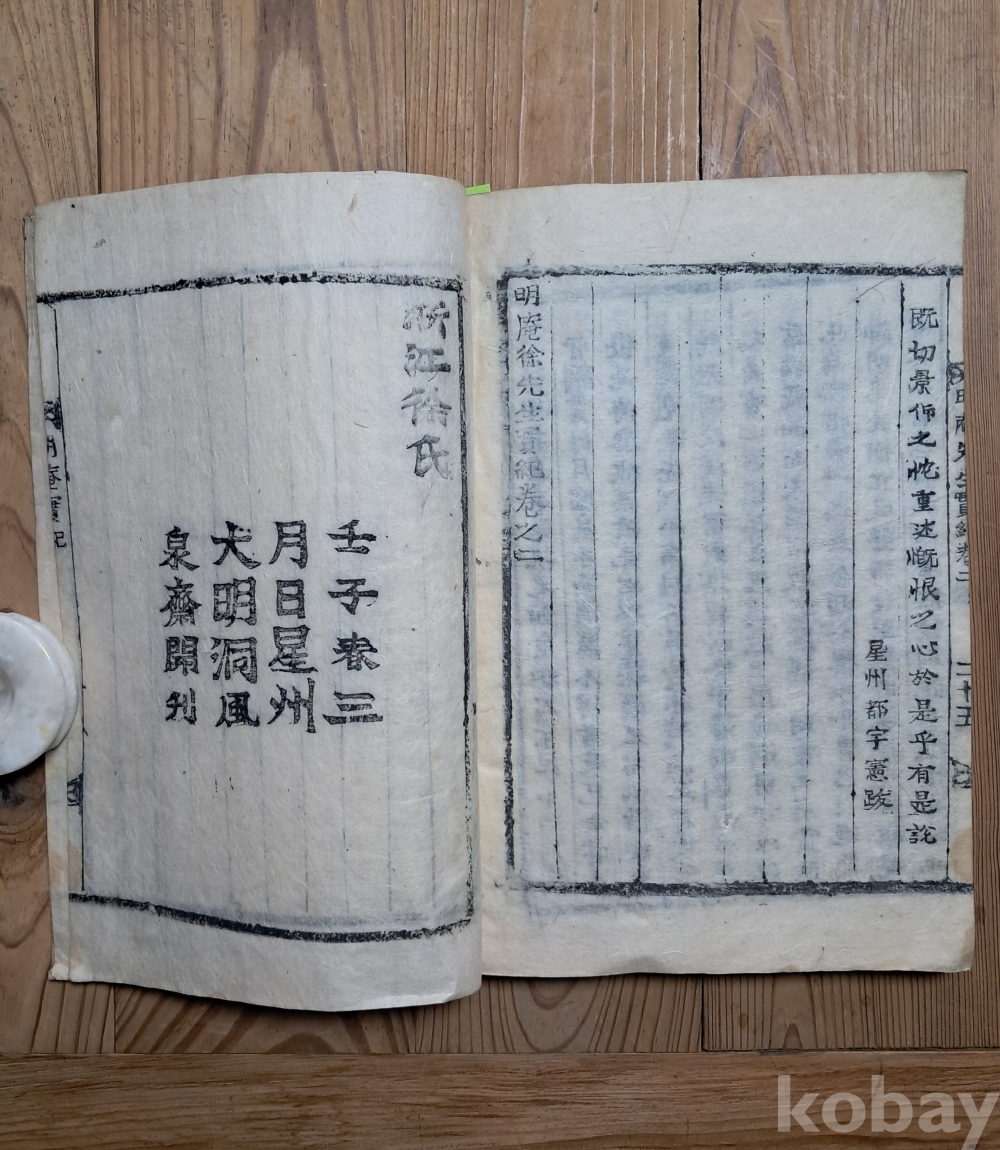 既切景仰之忱重述慨恨之心於是乎有是說
星州都宇憲跋
明庵徐先生實紀卷之二
浙江徐氏
壬子春三
月日星州
大明洞風
泉齋開刊
明庵實記
kobay